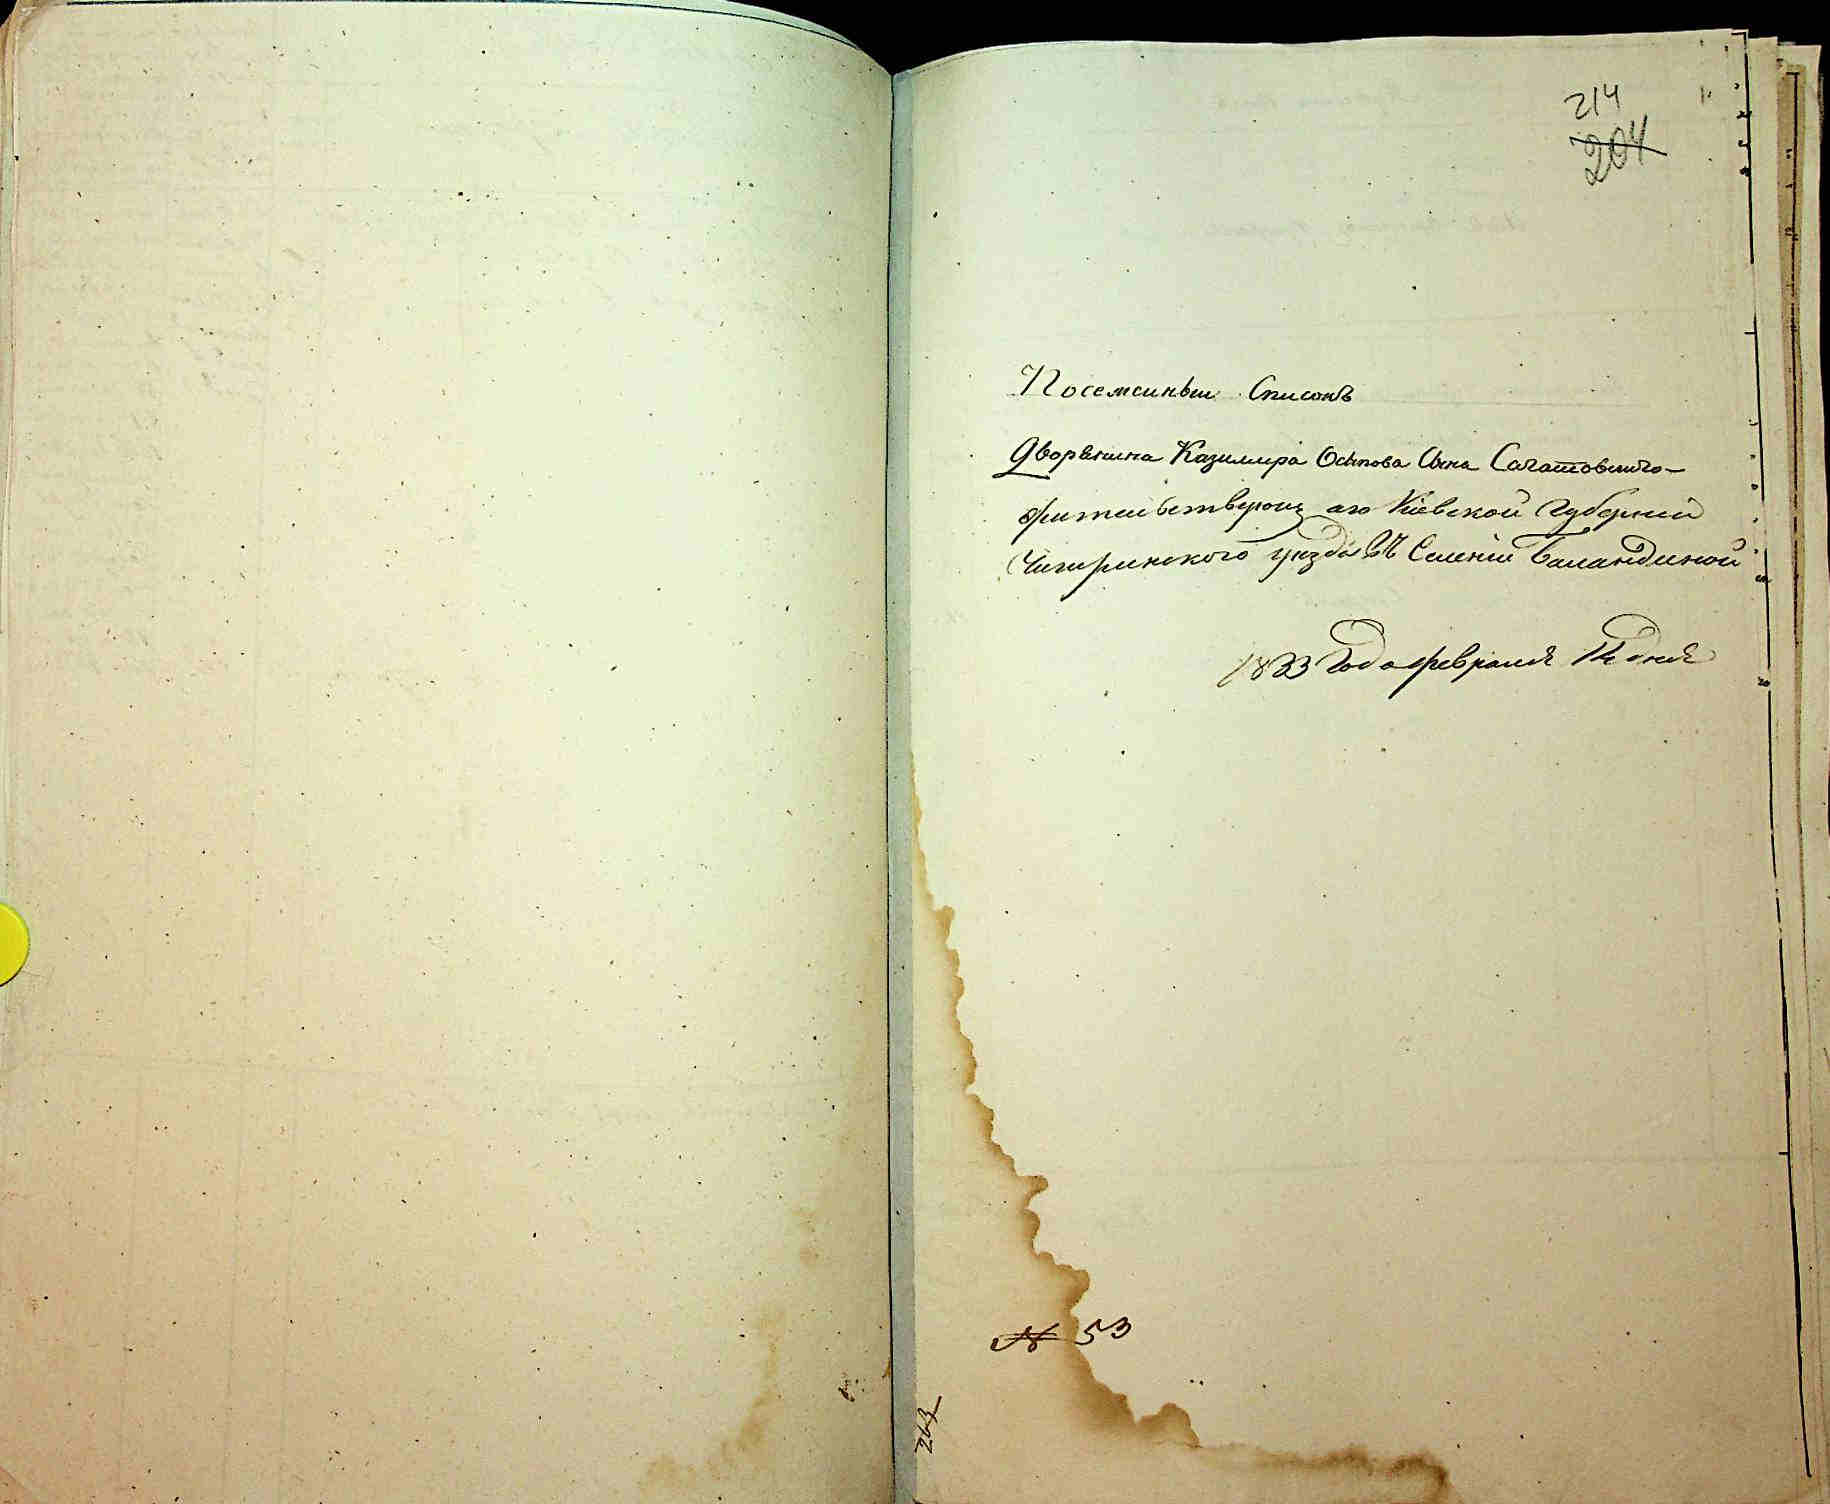 214
204
Посемейный Списокъ
Дворянина Казимира Осипова Сына Сагатовскаго
жительствующаго Кіевской Губерніи
Чигиринского уезда въ Селеніи Баландиной
1833 года февраля 14 дня
№ 53